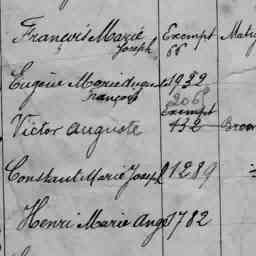 François Marie Exempt
Joseph 66
Eugène Marie Auguste 1939
François 2069
Exempt
Victor Auguste 132
Constant Marie Joseph 1289
Henri Marie Ange 1782